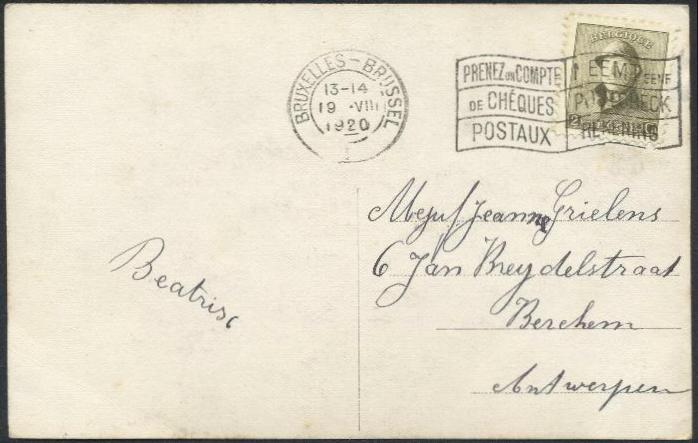 BRUXELLES - BRUSSEL
13-14
19 ·VIII
1920
PRENEZ UN COMPTE
DE CHÈQUES
POSTAUX
NEEMT EENE
POSTCHECK
REKENING
BELGIQUE
Mejuf Jeanne Grielens
6 Jan Breydelstraat
Berchem
Antwerpen
Beatrise